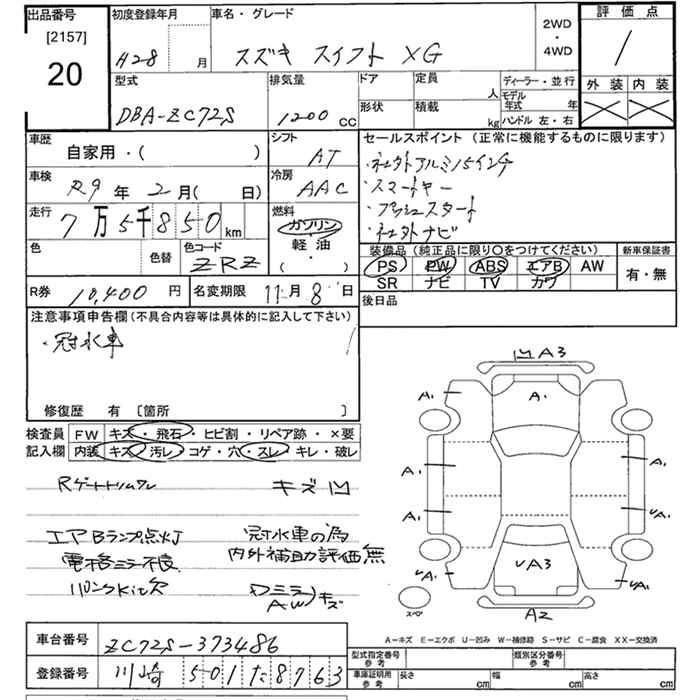 出品番号 初度登録年月 車名・グレード 2WD・4WD 評価点
[2157]
20 H28 月 スズキ スイフト XG /
型式 排気量 ドア 定員 人 ディーラー・並行 外装 内装
モデル年式 年
DBA-ZC72S 1200 cc 形状 積載 kg ハンドル 左・右
車歴 シフト セールスポイント (正常に機能するものに限ります)
自家用・( ) AT ・社外アルミ15インチ
車検 冷房 ・スマートキー
R9年 2月( 日) AAC ・プッシュスタート
走行 燃料 ・社外ナビ
7万5千850km ガソリン
色 色替 色コード 軽油 装備品 (純正品に限り○をつけてください) 新車保証書
ZRZ ( ・ ) PS PW ABS エアB AW 有・無
SR ナビ TV カワ
R券 10,400円 名変期限 11月8日 後日品
注意事項申告欄(不具合内容等は具体的に記入して下さい)
・冠水車
修復歴 有 [箇所 ]
凹A3
A1 A1 A1
A1 A1
A1 ↓A1
↓A1 ↓A3 ↓A1
スペア A2
検査員 FW キズ・飛石・ヒビ割・リペア跡・×要
記入欄 内装 キズ 汚レ・コゲ・穴・スレ・キレ・破レ
Rゲートトリムワレ キズ凹
エアBランプ点灯 冠水車の為
電格ミラー不良 内外補助評価無
パンクKit欠 Dミラー キズ
AW
A-キズ E-エクボ U-凹み W-補修跡 S-サビ C-腐食 XX-交換済
車台番号 ZC72S-373486
登録番号 川崎 501た8763
型式指定番号 参考 類別区分番号 参考
車庫証明用 参考 長さ cm 幅 cm 高さ cm